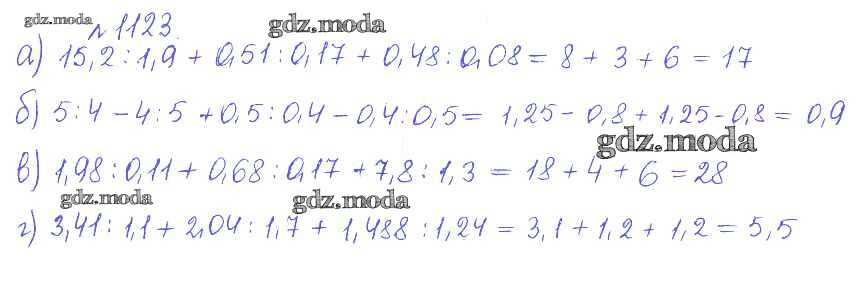 gdz.moda № 1123. gdz.moda
а) 15,2 : 1,9 + 0,51 : 0,17 + 0,48 : 0,08 = 8 + 3 + 6 = 17
б) 5 : 4 - 4 : 5 + 0,5 : 0,4 - 0,4 : 0,5 = 1,25 - 0,8 + 1,25 - 0,8 = 0,9
gdz.moda
в) 1,98 : 0,11 + 0,68 : 0,17 + 7,8 : 1,3 = 18 + 4 + 6 = 28
gdz.moda gdz.moda
г) 3,41 : 1,1 + 2,04 : 1,7 + 1,488 : 1,24 = 3,1 + 1,2 + 1,2 = 5,5